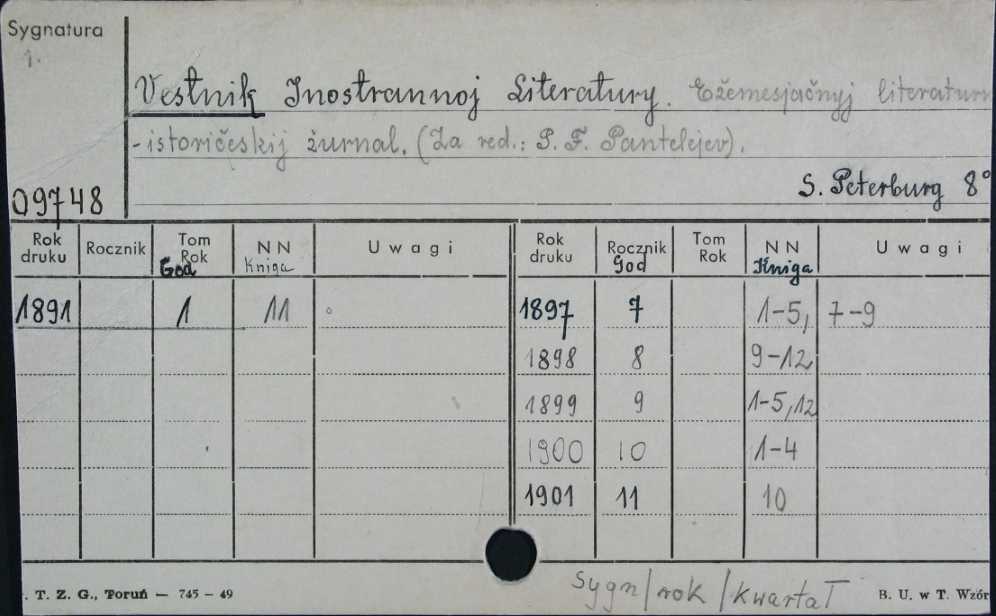 Sygnatura
1.
Vestnik Inostrannoj Literatury. Ežemesjačnyj literaturn
-istoričeskij žurnal. (Za red.: P. F. Pantelejev).
S. Peterburg 8°
09748
Rok druku Rocznik Tom Rok God NN Kniga Uwagi Rok druku Rocznik God Tom Rok NN Kniga Uwagi
1891 1 11 1897 7 1-5, 7-9
1898 8 9-12
1899 9 1-5,12
1900 10 1-4
1901 11 10
sygn/rok/kwartał
T. Z. G., Toruń — 745 - 49 B. U. w T. Wzór